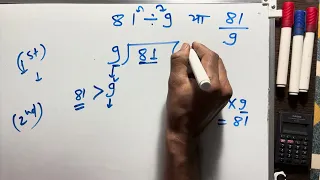 81 ÷ 9 या 81/9
(1st) 9 ) 81 (
81 > 9
(2nd)
× 9
= 81